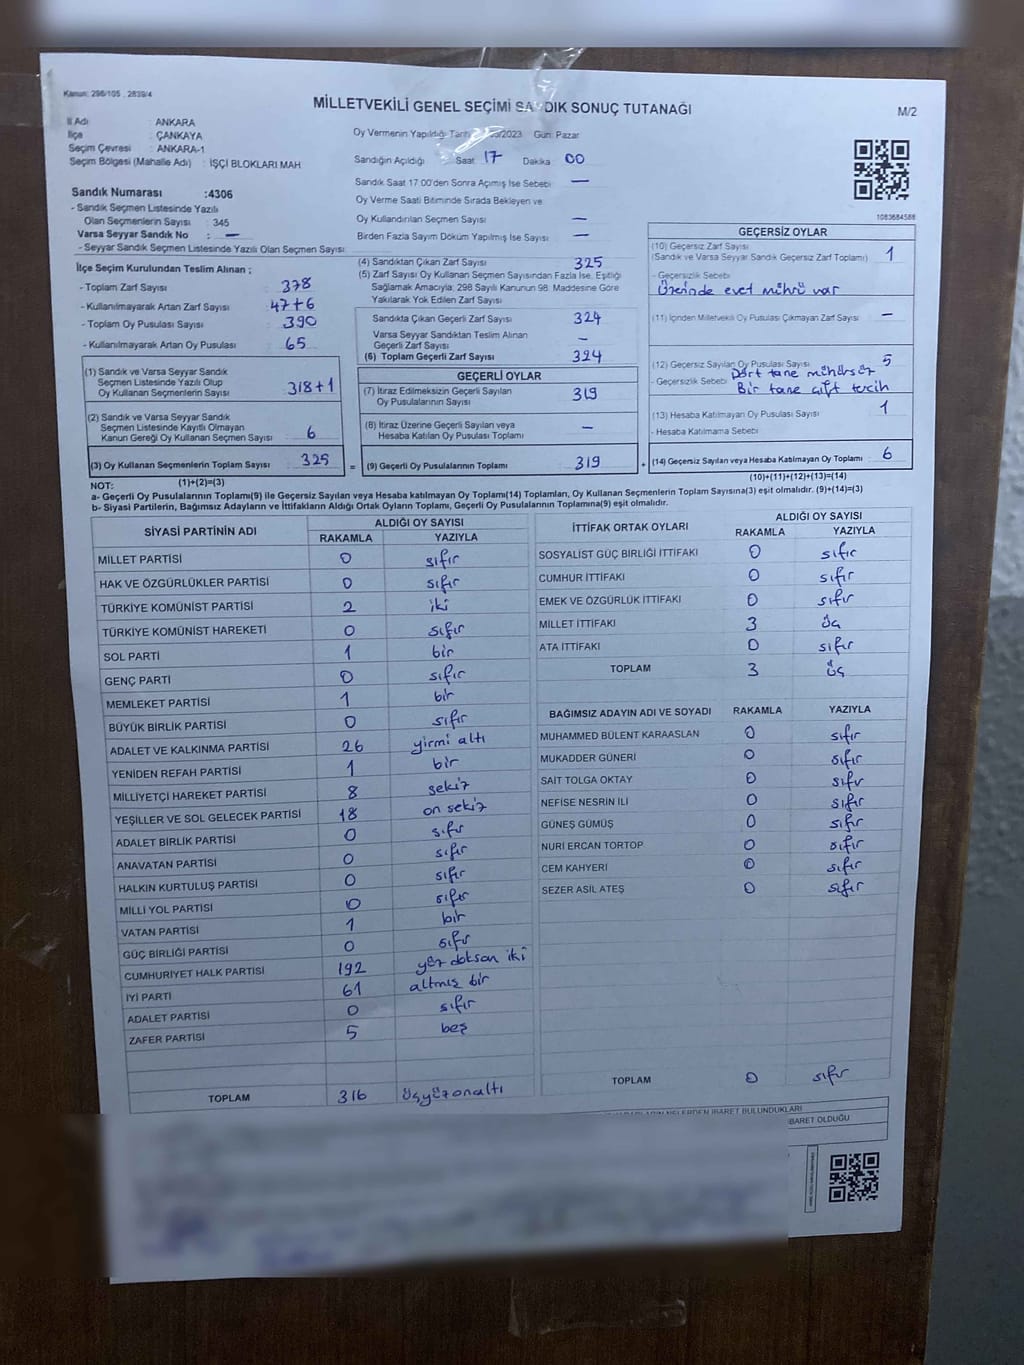 Kanun: 298/105 , 2839/4
MİLLETVEKİLİ GENEL SEÇİMİ SANDIK SONUÇ TUTANAĞI
M/2
İl Adı : ANKARA
İlçe : ÇANKAYA
Seçim Çevresi : ANKARA-1
Seçim Bölgesi (Mahalle Adı) : İŞÇİ BLOKLARI MAH
Sandık Numarası :4306
- Sandık Seçmen Listesinde Yazılı
Olan Seçmenlerin Sayısı : 345
Varsa Seyyar Sandık No : —
- Seyyar Sandık Seçmen Listesinde Yazılı Olan Seçmen Sayısı:
Oy Vermenin Yapıldığı 2023 Gün: Pazar
Sandığın Açıldığı Saat 17 Dakika 00
Sandık Saat 17.00'den Sonra Açımış İse Sebebi —
Oy Verme Saati Bitiminde Sırada Bekleyen ve
Oy Kullandırılan Seçmen Sayısı —
Birden Fazla Sayım Döküm Yapılmış İse Sayısı —
1083684588
İlçe Seçim Kurulundan Teslim Alınan ;
- Toplam Zarf Sayısı 378
- Kullanılmayarak Artan Zarf Sayısı 47+6
- Toplam Oy Pusulası Sayısı 390
- Kullanılmayarak Artan Oy Pusulası 65
(1) Sandık ve Varsa Seyyar Sandık
Seçmen Listesinde Yazılı Olup
Oy Kullanan Seçmenlerin Sayısı 318+1
(2) Sandık ve Varsa Seyyar Sandık
Seçmen Listesinde Kayıtlı Olmayan
Kanun Gereği Oy Kullanan Seçmen Sayısı 6
(3) Oy Kullanan Seçmenlerin Toplam Sayısı 325
(1)+(2)=(3)
(4) Sandıktan Çıkan Zarf Sayısı 325
(5) Zarf Sayısı Oy Kullanan Seçmen Sayısından Fazla İse, Eşitliği
Sağlamak Amacıyla; 298 Sayılı Kanunun 98. Maddesine Göre
Yakılarak Yok Edilen Zarf Sayısı
Sandıkta Çıkan Geçerli Zarf Sayısı 324
Varsa Seyyar Sandıktan Teslim Alınan
Geçerli Zarf Sayısı —
(6) Toplam Geçerli Zarf Sayısı 324
GEÇERLİ OYLAR
(7) İtiraz Edilmeksizin Geçerli Sayılan
Oy Pusulalarının Sayısı 319
(8) İtiraz Üzerine Geçerli Sayılan veya
Hesaba Katılan Oy Pusulası Toplamı —
= (9) Geçerli Oy Pusulalarının Toplamı 319
GEÇERSİZ OYLAR
(10) Geçersiz Zarf Sayısı
(Sandık ve Varsa Seyyar Sandık Geçersiz Zarf Toplamı) 1
- Geçersizlik Sebebi
Üzerinde evet mührü var
(11) İçinden Milletvekili Oy Pusulası Çıkmayan Zarf Sayısı —
(12) Geçersiz Sayılan Oy Pusulası Sayısı 5
- Geçersizlik Sebebi Dört tane mühürsüz
Bir tane çift tercih
(13) Hesaba Katılmayan Oy Pusulası Sayısı 1
- Hesaba Katılmama Sebebi
+ (14) Geçersiz Sayılan veya Hesaba Katılmayan Oy Toplamı 6
(10)+(11)+(12)+(13)=(14)
NOT:
a- Geçerli Oy Pusulalarının Toplamı(9) ile Geçersiz Sayılan veya Hesaba katılmayan Oy Toplamı(14) Toplamları, Oy Kullanan Seçmenlerin Toplam Sayısına(3) eşit olmalıdır. (9)+(14)=(3)
b- Siyasi Partilerin, Bağımsız Adayların ve İttifakların Aldığı Ortak Oyların Toplamı, Geçerli Oy Pusulalarının Toplamına(9) eşit olmalıdır.
SİYASİ PARTİNİN ADI ALDIĞI OY SAYISI
RAKAMLA YAZIYLA
MİLLET PARTİSİ 0 sıfır
HAK VE ÖZGÜRLÜKLER PARTİSİ 0 sıfır
TÜRKİYE KOMÜNİST PARTİSİ 2 iki
TÜRKİYE KOMÜNİST HAREKETİ 0 sıfır
SOL PARTİ 1 bir
GENÇ PARTİ 0 sıfır
MEMLEKET PARTİSİ 1 bir
BÜYÜK BİRLİK PARTİSİ 0 sıfır
ADALET VE KALKINMA PARTİSİ 26 yirmi altı
YENİDEN REFAH PARTİSİ 1 bir
MİLLİYETÇİ HAREKET PARTİSİ 8 sekiz
YEŞİLLER VE SOL GELECEK PARTİSİ 18 on sekiz
ADALET BİRLİK PARTİSİ 0 sıfır
ANAVATAN PARTİSİ 0 sıfır
HALKIN KURTULUŞ PARTİSİ 0 sıfır
MİLLİ YOL PARTİSİ 0 sıfır
VATAN PARTİSİ 1 bir
GÜÇ BİRLİĞİ PARTİSİ 0 sıfır
CUMHURİYET HALK PARTİSİ 192 yüz doksan iki
İYİ PARTİ 61 altmış bir
ADALET PARTİSİ 0 sıfır
ZAFER PARTİSİ 5 beş
TOPLAM 316 üçyüzonaltı
İTTİFAK ORTAK OYLARI ALDIĞI OY SAYISI
RAKAMLA YAZIYLA
SOSYALİST GÜÇ BİRLİĞİ İTTİFAKI 0 sıfır
CUMHUR İTTİFAKI 0 sıfır
EMEK VE ÖZGÜRLÜK İTTİFAKI 0 sıfır
MİLLET İTTİFAKI 3 üç
ATA İTTİFAKI 0 sıfır
TOPLAM 3 üç
BAĞIMSIZ ADAYIN ADI VE SOYADI RAKAMLA YAZIYLA
MUHAMMED BÜLENT KARAASLAN 0 sıfır
MUKADDER GÜNERİ 0 sıfır
SAİT TOLGA OKTAY 0 sıfır
NEFİSE NESRİN İLİ 0 sıfır
GÜNEŞ GÜMÜŞ 0 sıfır
NURİ ERCAN TORTOP 0 sıfır
CEM KAHYERİ 0 sıfır
SEZER ASİL ATEŞ 0 sıfır
TOPLAM 0 sıfır
NELERDEN İBARET BULUNDUKLARI
İBARET OLDUĞU